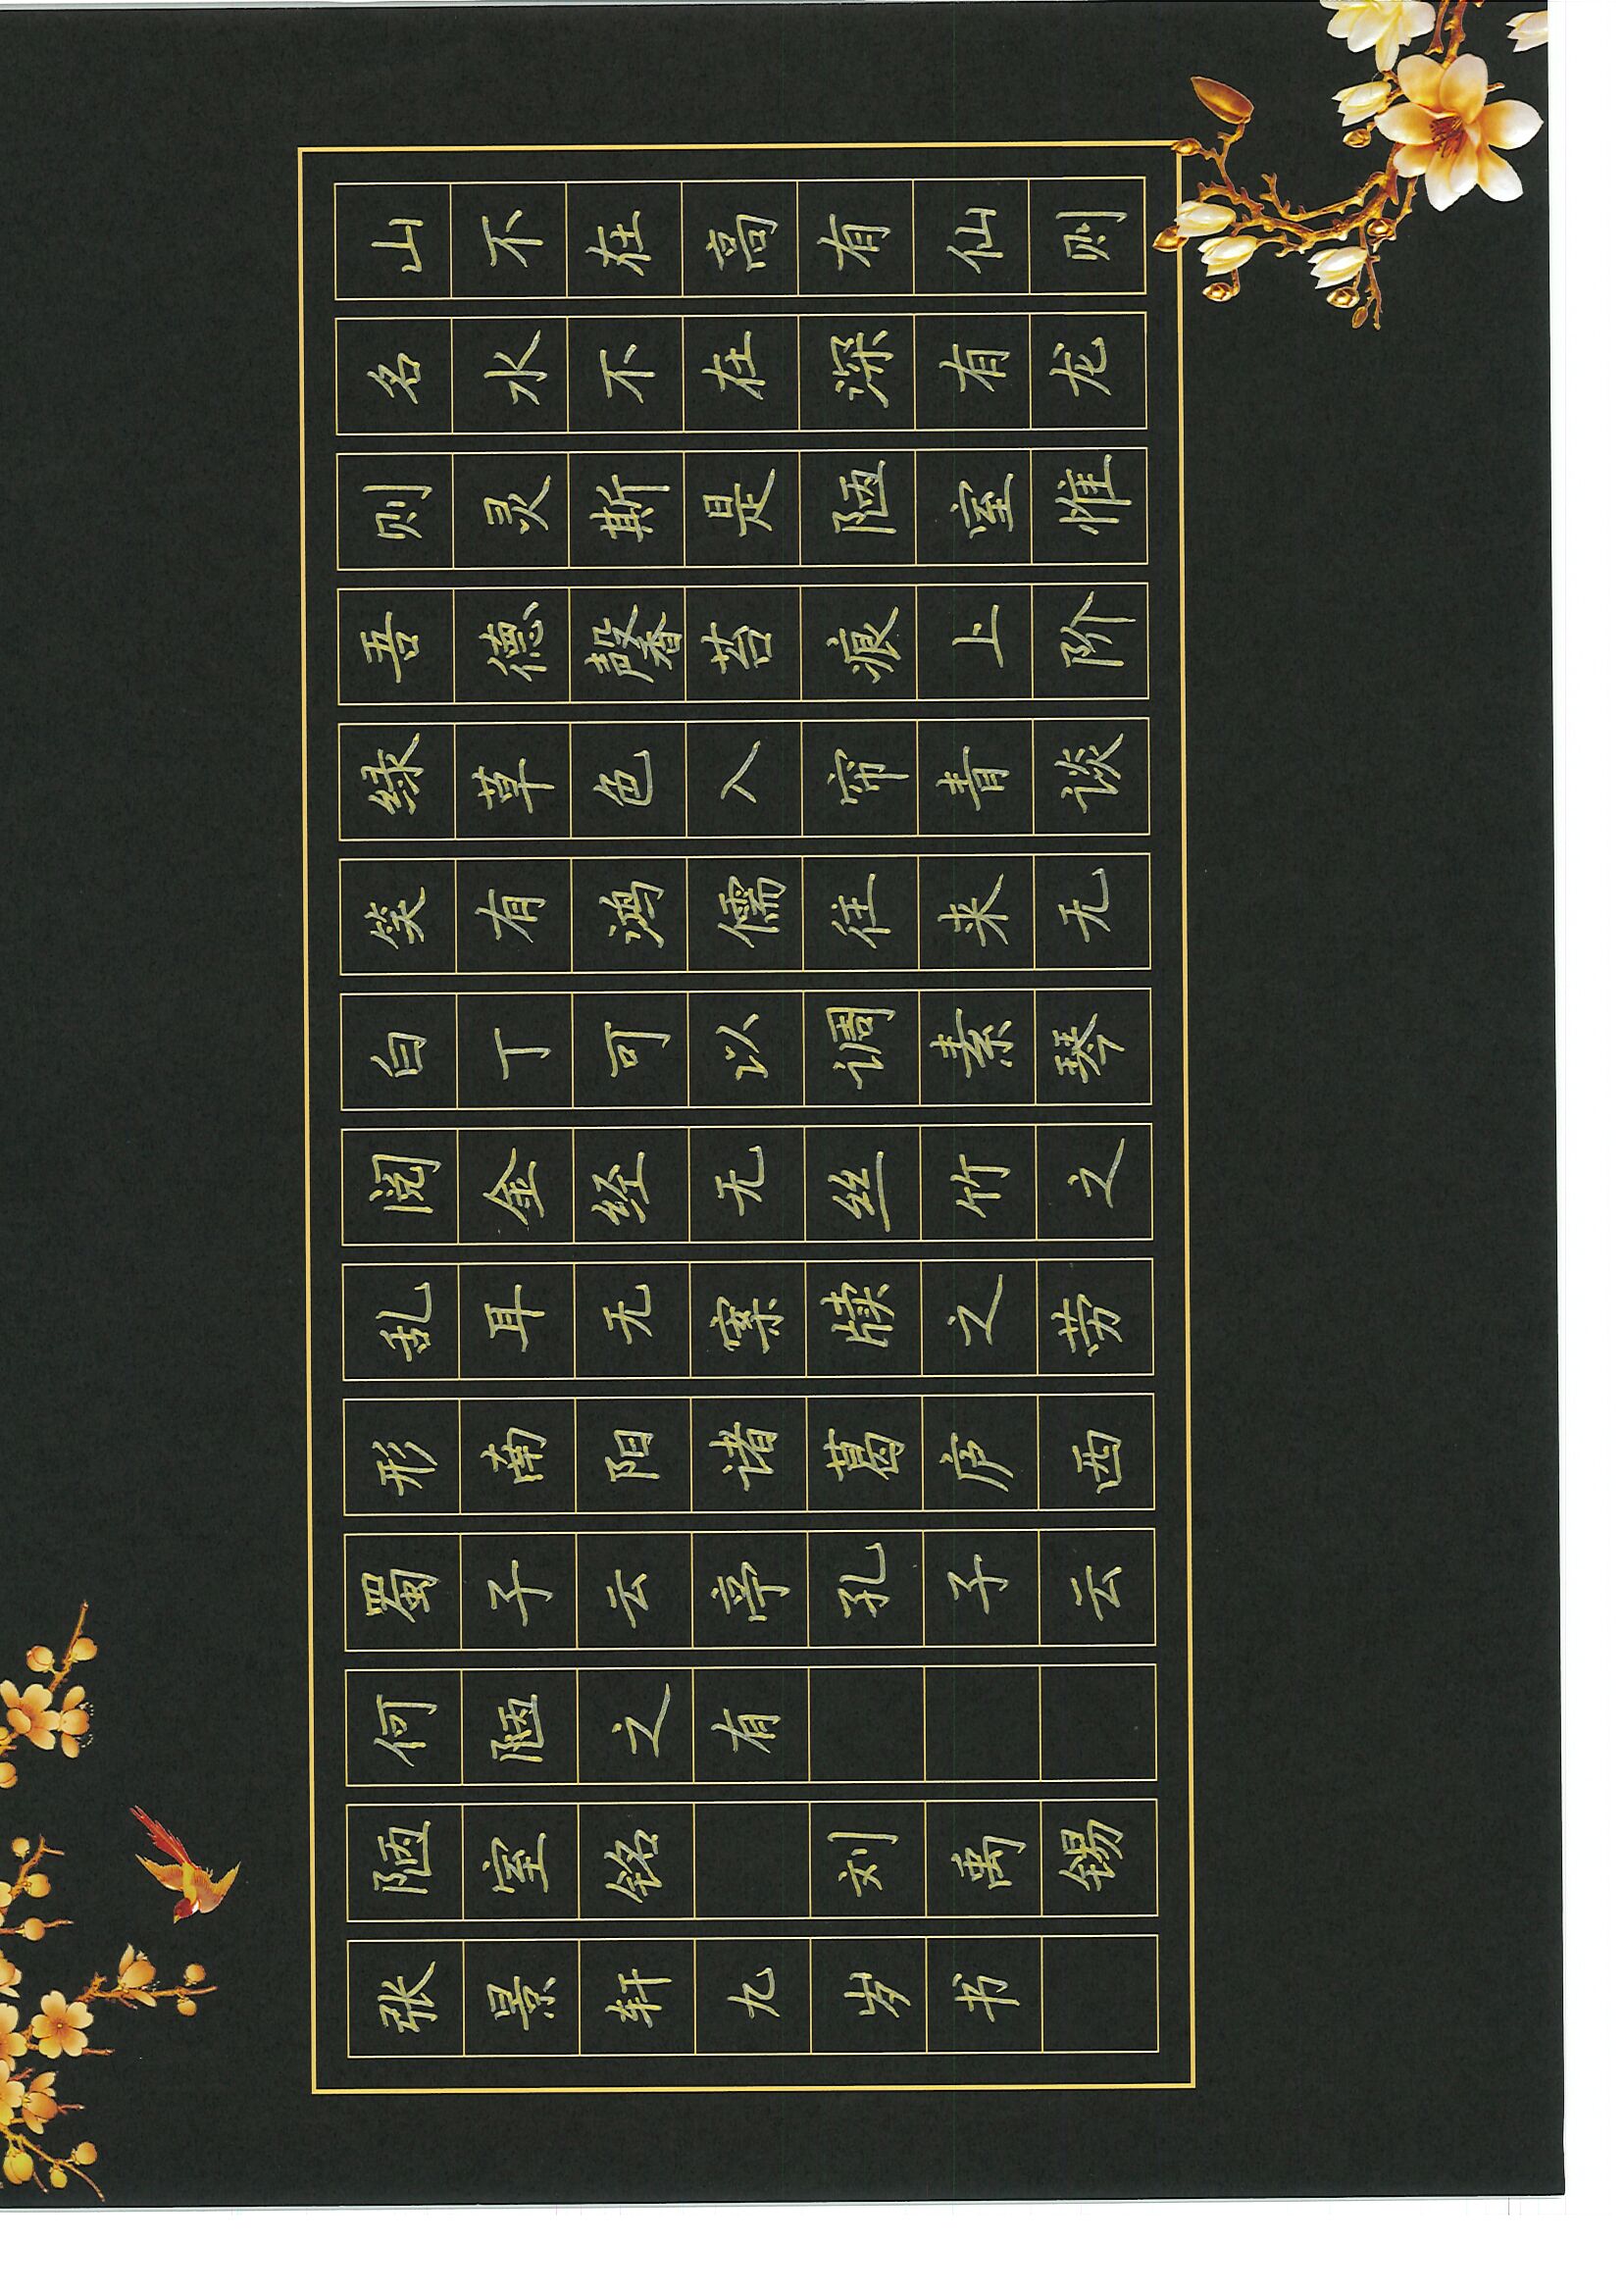 山不在高有仙则
名水不在深有龙
则灵斯是陋室惟
吾德馨苔痕上阶
绿草色入帘青谈
笑有鸿儒往来无
白丁可以调素琴
阅金经无丝竹之
乱耳无案牍之劳
形南阳诸葛庐西
蜀子云亭孔子云
何陋之有
陋室铭 刘禹锡
张景轩九岁书